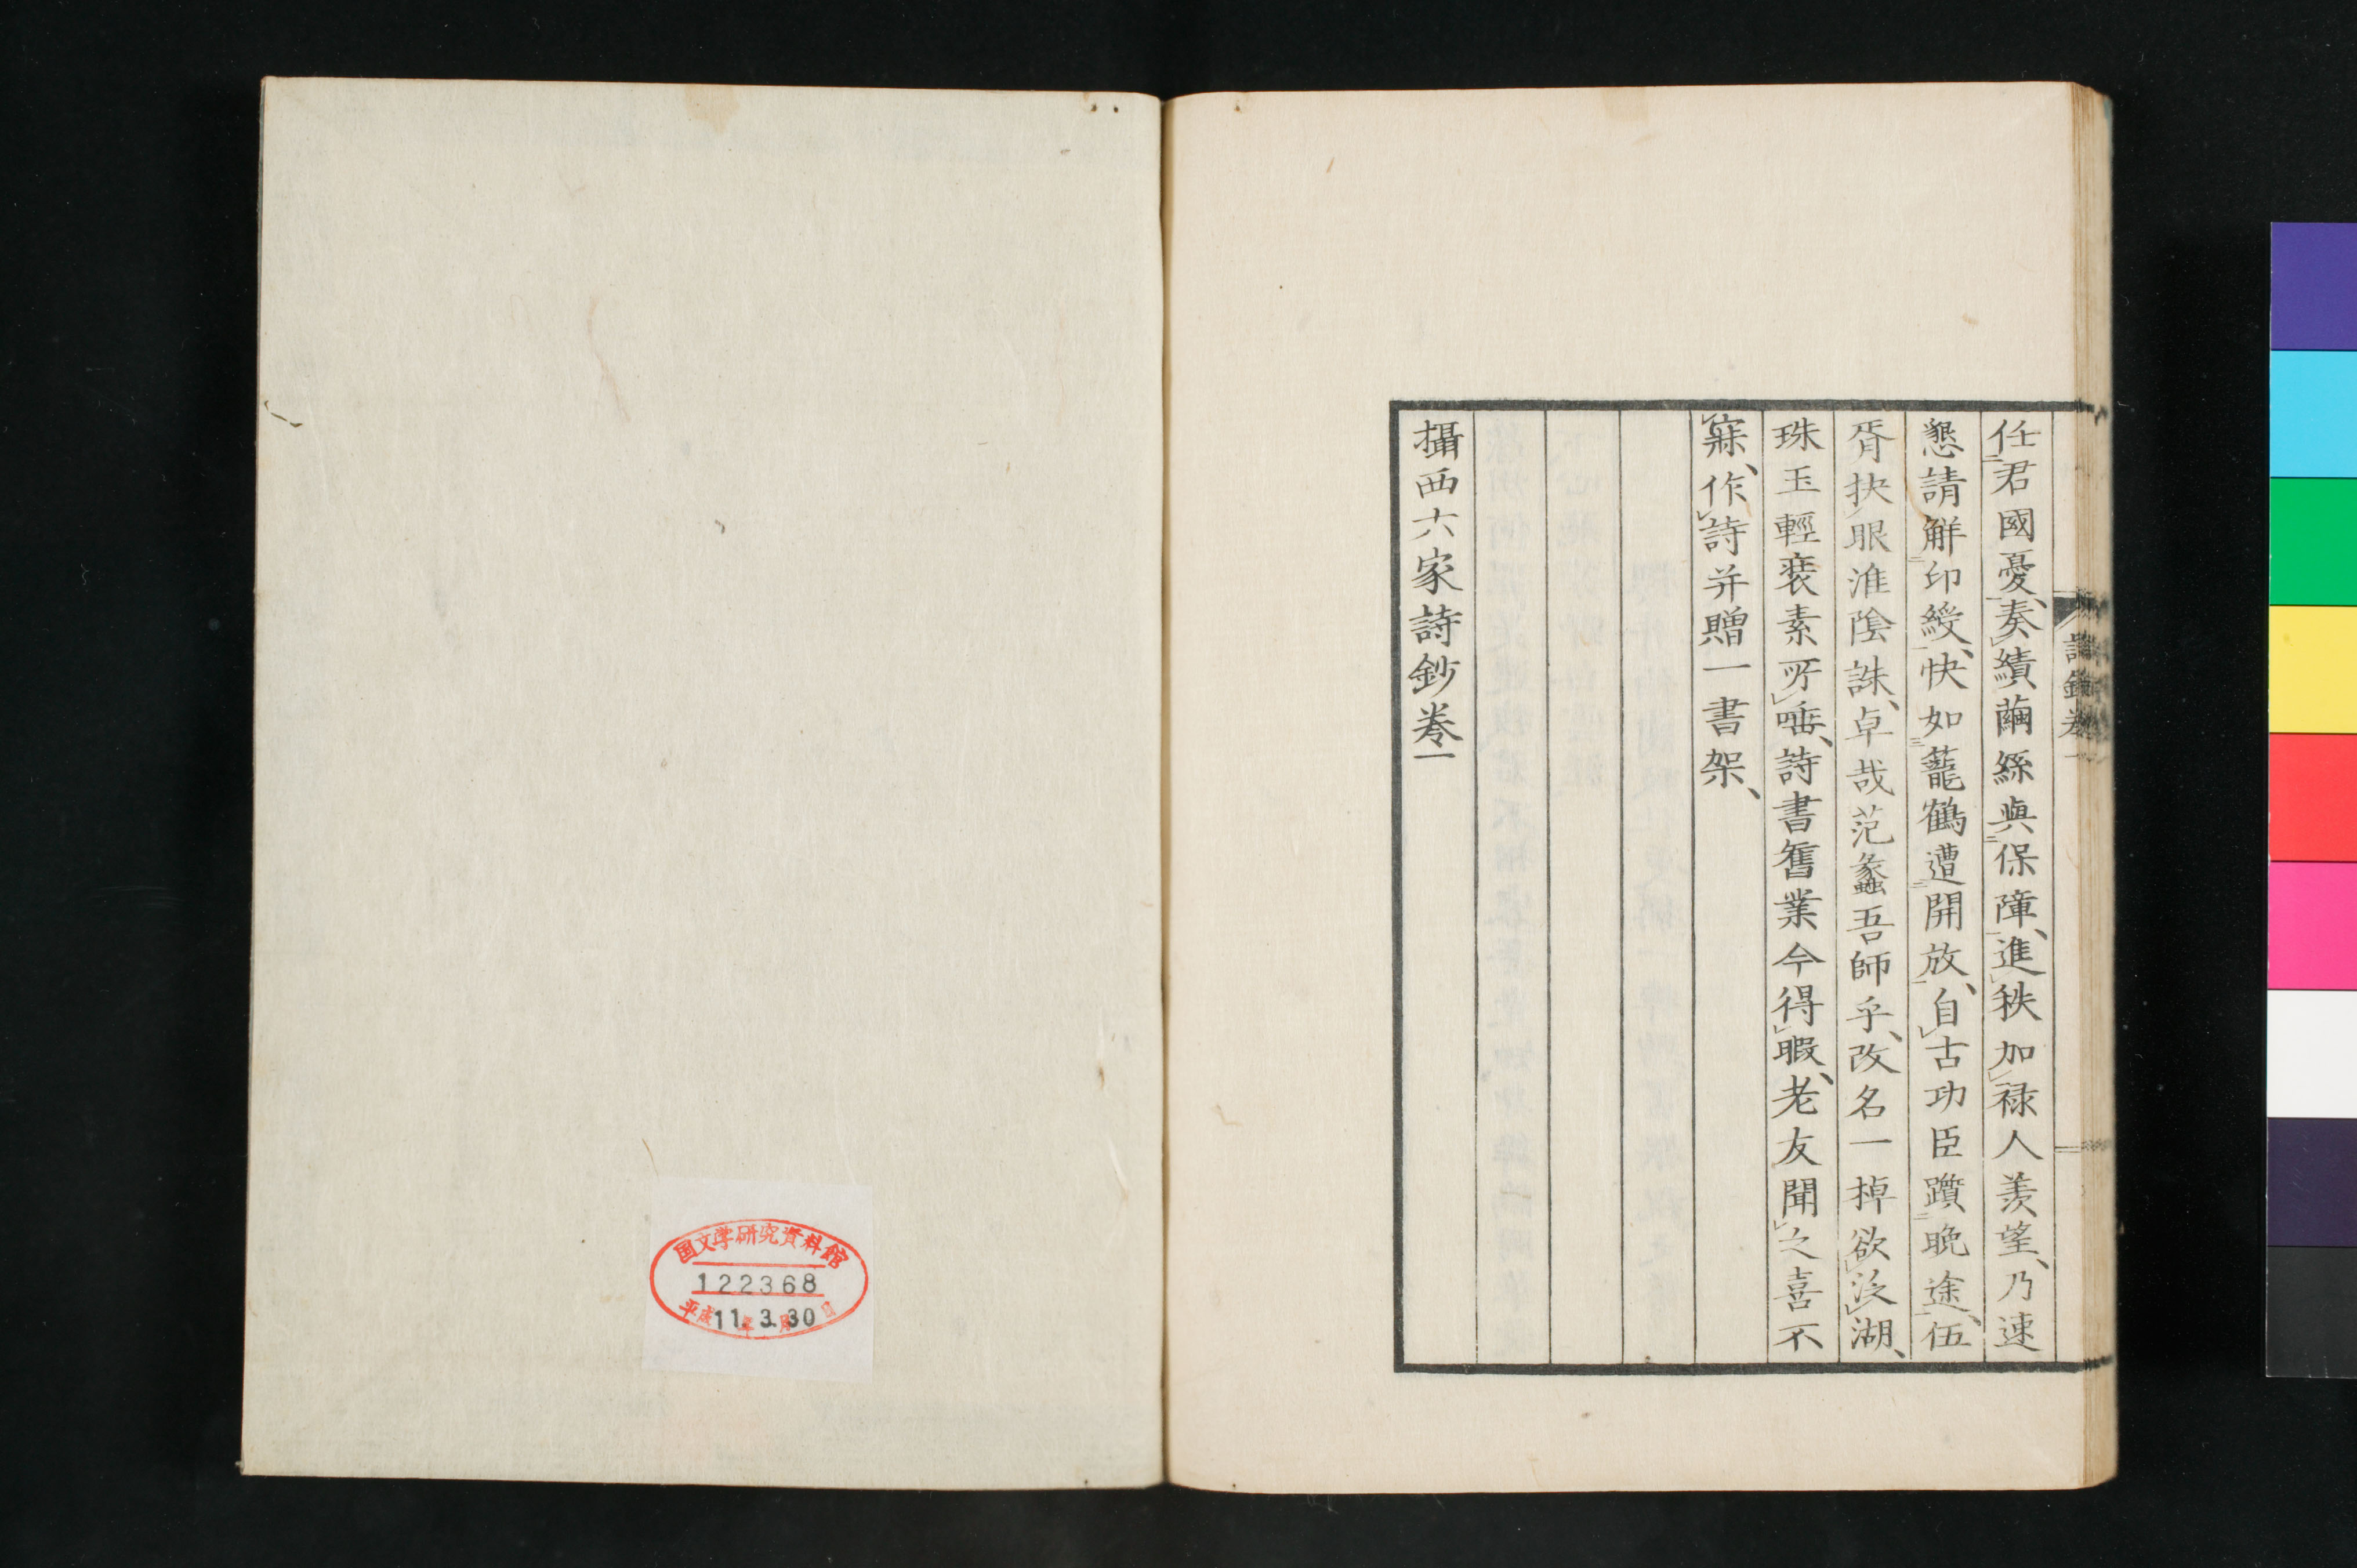 詩鈔卷一
任君國憂、奏績繭絲與保障、進秩加祿人羨望、乃速
懇請解印綬、快如蘢鶴遭開放、自古功臣躓晚途、伍
胥抉眼淮陰誅、卓哉范蠡吾師乎、改名一棹欲泛湖、
珠玉輕裘素所唾、詩書舊業今得暇、老友聞之喜不
寐、作詩并贈一書架、
攝西六家詩鈔卷一
国文学研究資料館
122368
平成11年3月30日